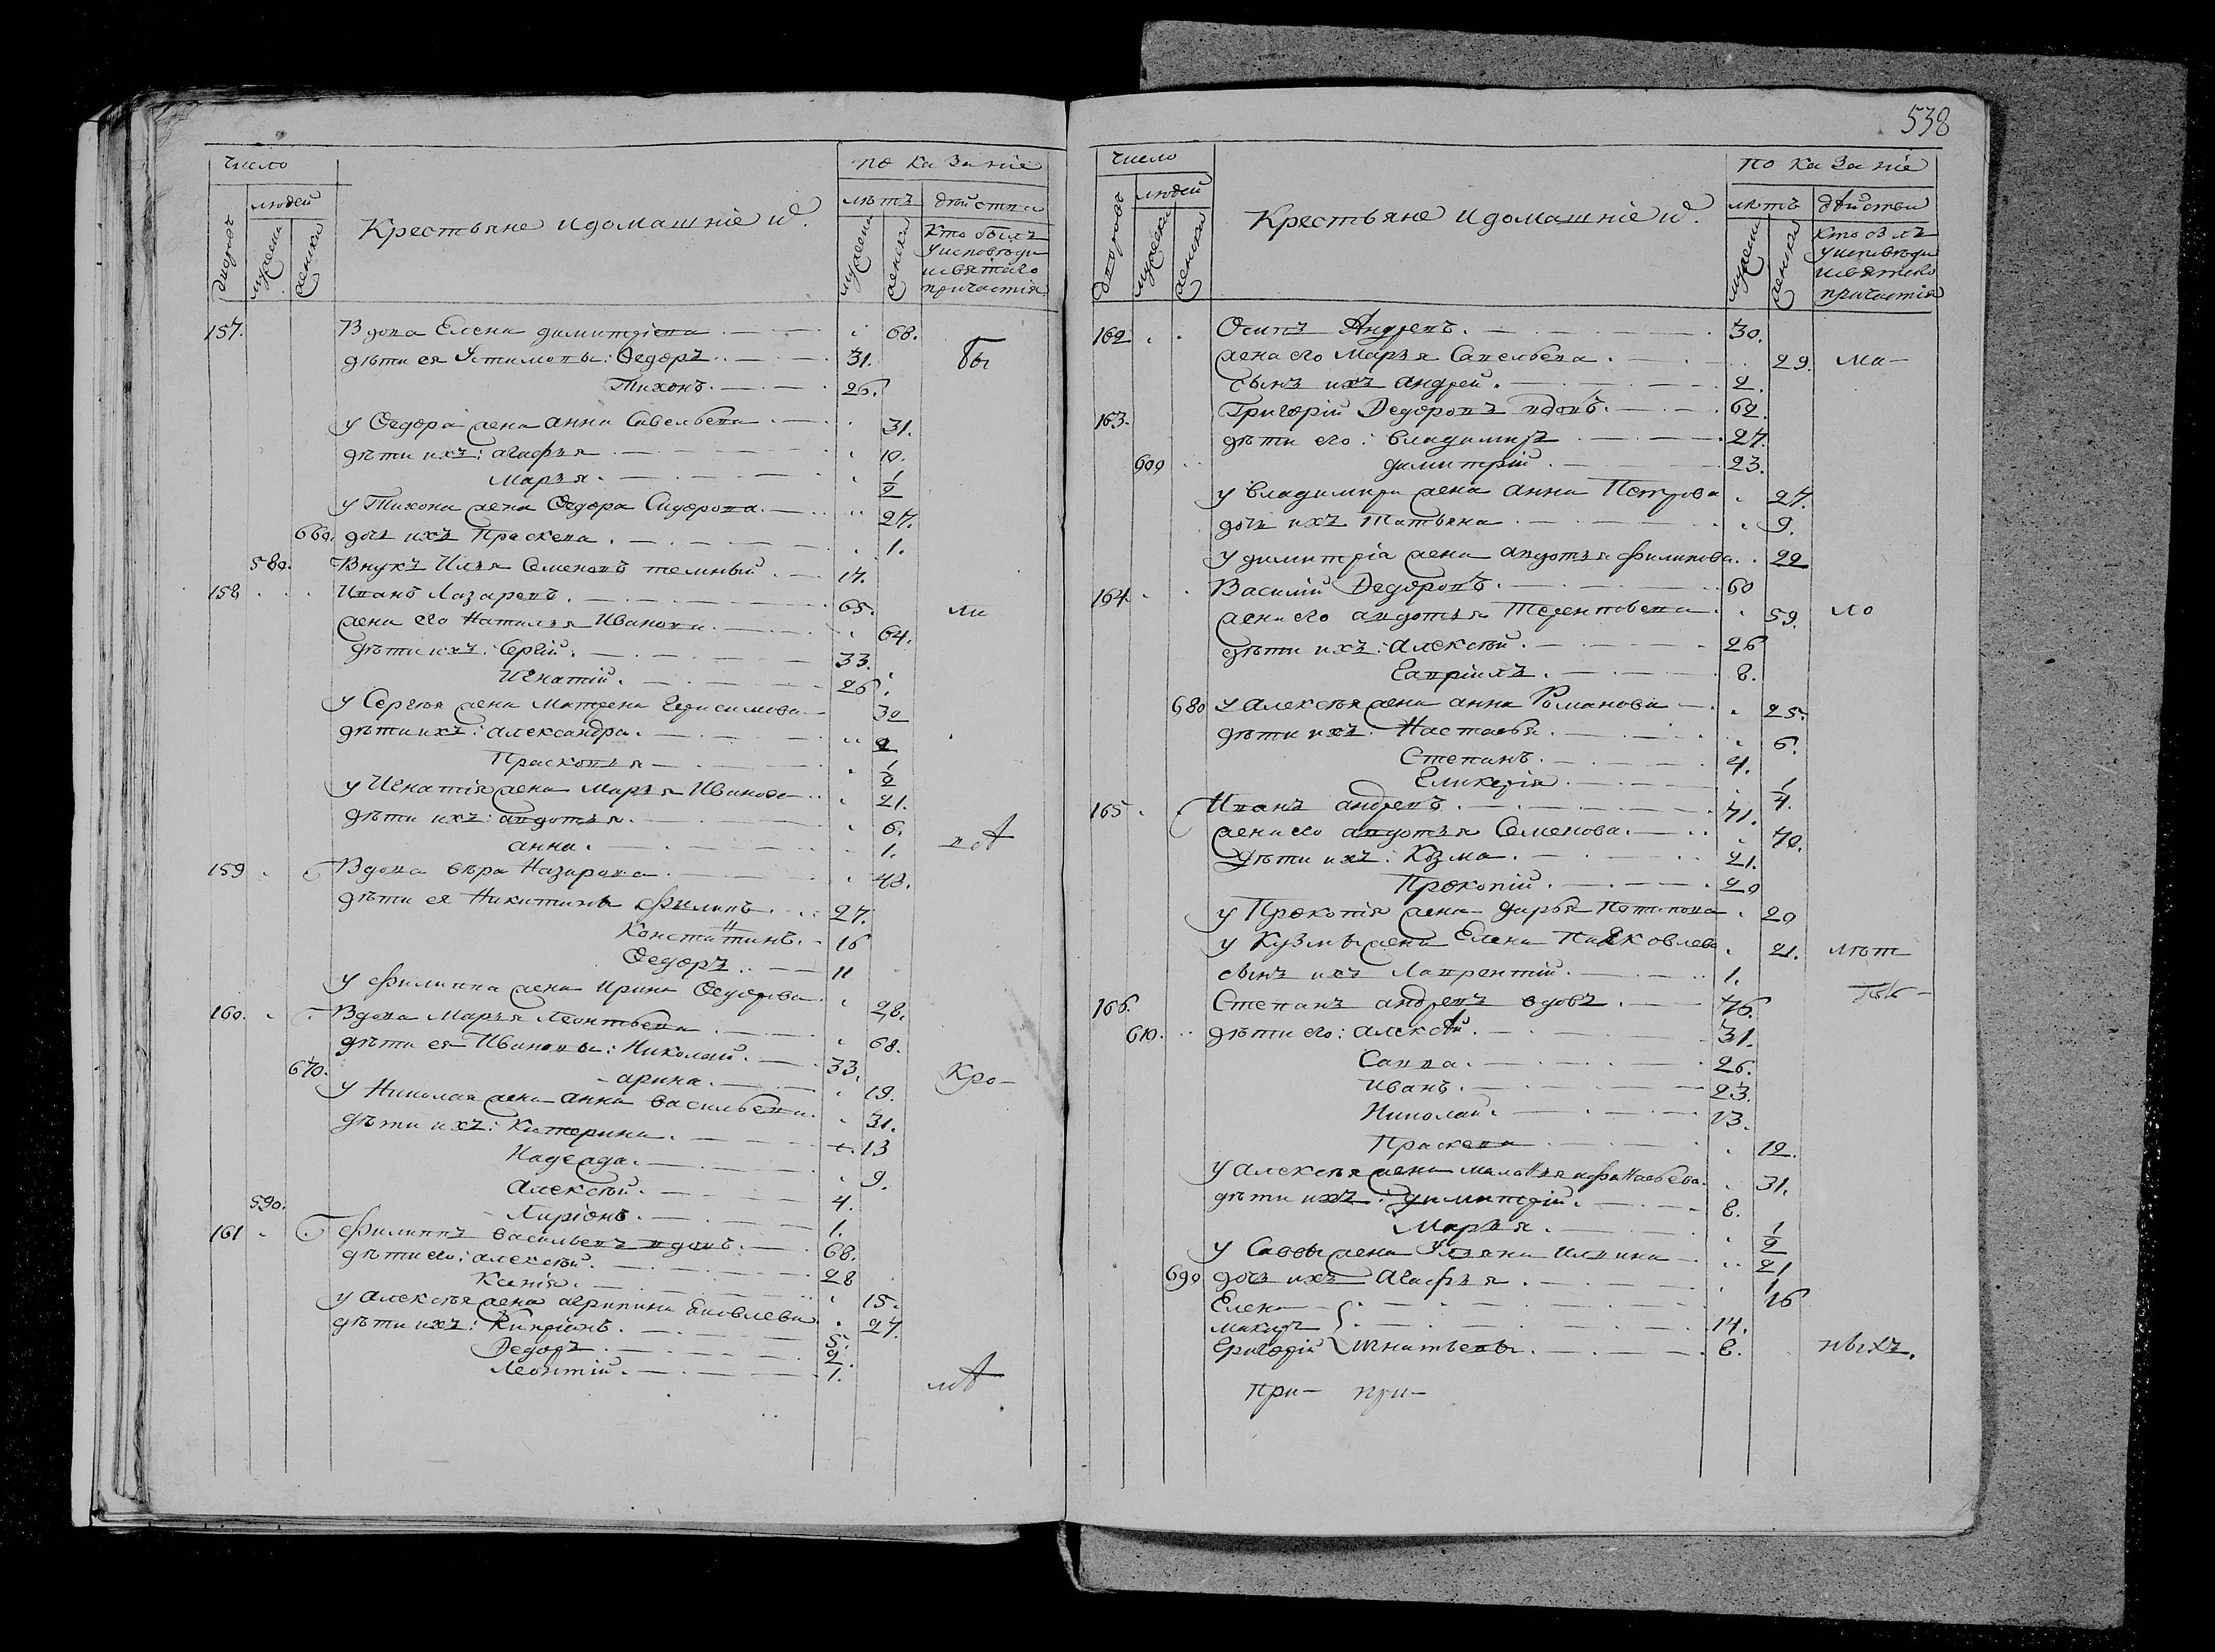 538
число
по казаніе
людей
лѣтъ
дѣйства
дворовъ
мужеска
женска
Крестьяне и домашніе ихъ
мужеска
женска
Кто былъ
у исповѣди
и святаго
причастія
157. Вдова Елена димитріева 68.
дѣти ея Устимовы: Ѳедоръ 31. бы
Тихонъ 26.
у Ѳедора жена анна Савельева 31.
дѣти ихъ: агафья 10.
Марья 1/2
у Тихона жена Ѳедора Сидорова 27.
660. дочь ихъ Праскева 1.
580. Внукъ Илья Семеновъ темный 17.
158 Иванъ Лазаревъ 65. ли
жена его Наталья Иванова 64.
дѣти ихъ: Сергій 33.
Игнатій 26.
у Сергѣя жена Матрена Герасимова 30
дѣти ихъ: александра 2
Прасковья 1/2
у Игнатія жена Марья Иванова 21.
дѣти ихъ: авдотья 6.
анна 1.
159 Вдова вѣра Назарова 43.
дѣти ея Никитины филипъ 27.
Константинъ 16
Ѳедоръ 11
у филиппа жена Ирина Ѳедорова 28.
160. Вдова Марья Леонтьева 68.
дѣти ея Ивановы: Николай 33.
670. арина 19. Кро-
у Николая жена анна васильева 31.
дѣти ихъ: Катерина 13
Надежда 9.
Алексѣй 4.
590. Ларіонъ 1.
161 филиппъ васильевъ вдовъ 68.
дѣти его: алексѣй 28
Ксенія 15.
у Алексѣя жена агрипина Яковлева 27.
дѣти ихъ: Кипріянъ 5.
Ѳедоръ 2.
Леонтій 1.
число
по казаніе
людей
лѣтъ
дѣйства
дворовъ
мужеска
женска
Крестьяне и домашніе ихъ
мужеска
женска
Кто былъ
у исповѣди
и святаго
причастія
162 Осипъ Андревъ 30.
жена его Марья Савельева 29. ма-
сынъ ихъ андрей 2.
163. Григорій Ѳедоровъ вдовъ 62.
дѣти его: владимиръ 27.
600 димитрій 23.
у владимира жена анна Петрова 27.
дочь ихъ Татьяна 9.
у димитріа жена авдотья филипова 22
164 Василій Ѳедоровъ 60
жена его авдотья Терентьева 59. ло
дѣти ихъ: алексѣй 26
Гавріилъ 8.
680 у алексѣя жена анна Романова 25.
дѣти ихъ: Настасья 6.
Степанъ 4.
Гликерія 1/4.
165 Иванъ андревъ 71.
жена его авдотья Семенова 70.
дѣти ихъ: Козма 21.
Прокопій 20
у Прокопія жена дарья Потапова 20
у Кузмы жена Елена Яковлева 21. лѣт
сынъ ихъ Лаврентій 1.
166. Степанъ андревъ вдовъ 76.
610. дѣти его: алексѣй 31.
Савва 26.
Иванъ 23.
Николай 13.
Праскева 12.
у алексѣя жена маланья афанасьева 31.
дѣти ихъ: димитрій 8.
Марья 1/2
у Саввы жена Ульяна Ильина 21
690 дочь ихъ Агафья 1
Елена 16
макаръ 14.
григорій Игнатьевы 8. ныхъ.
при- при-